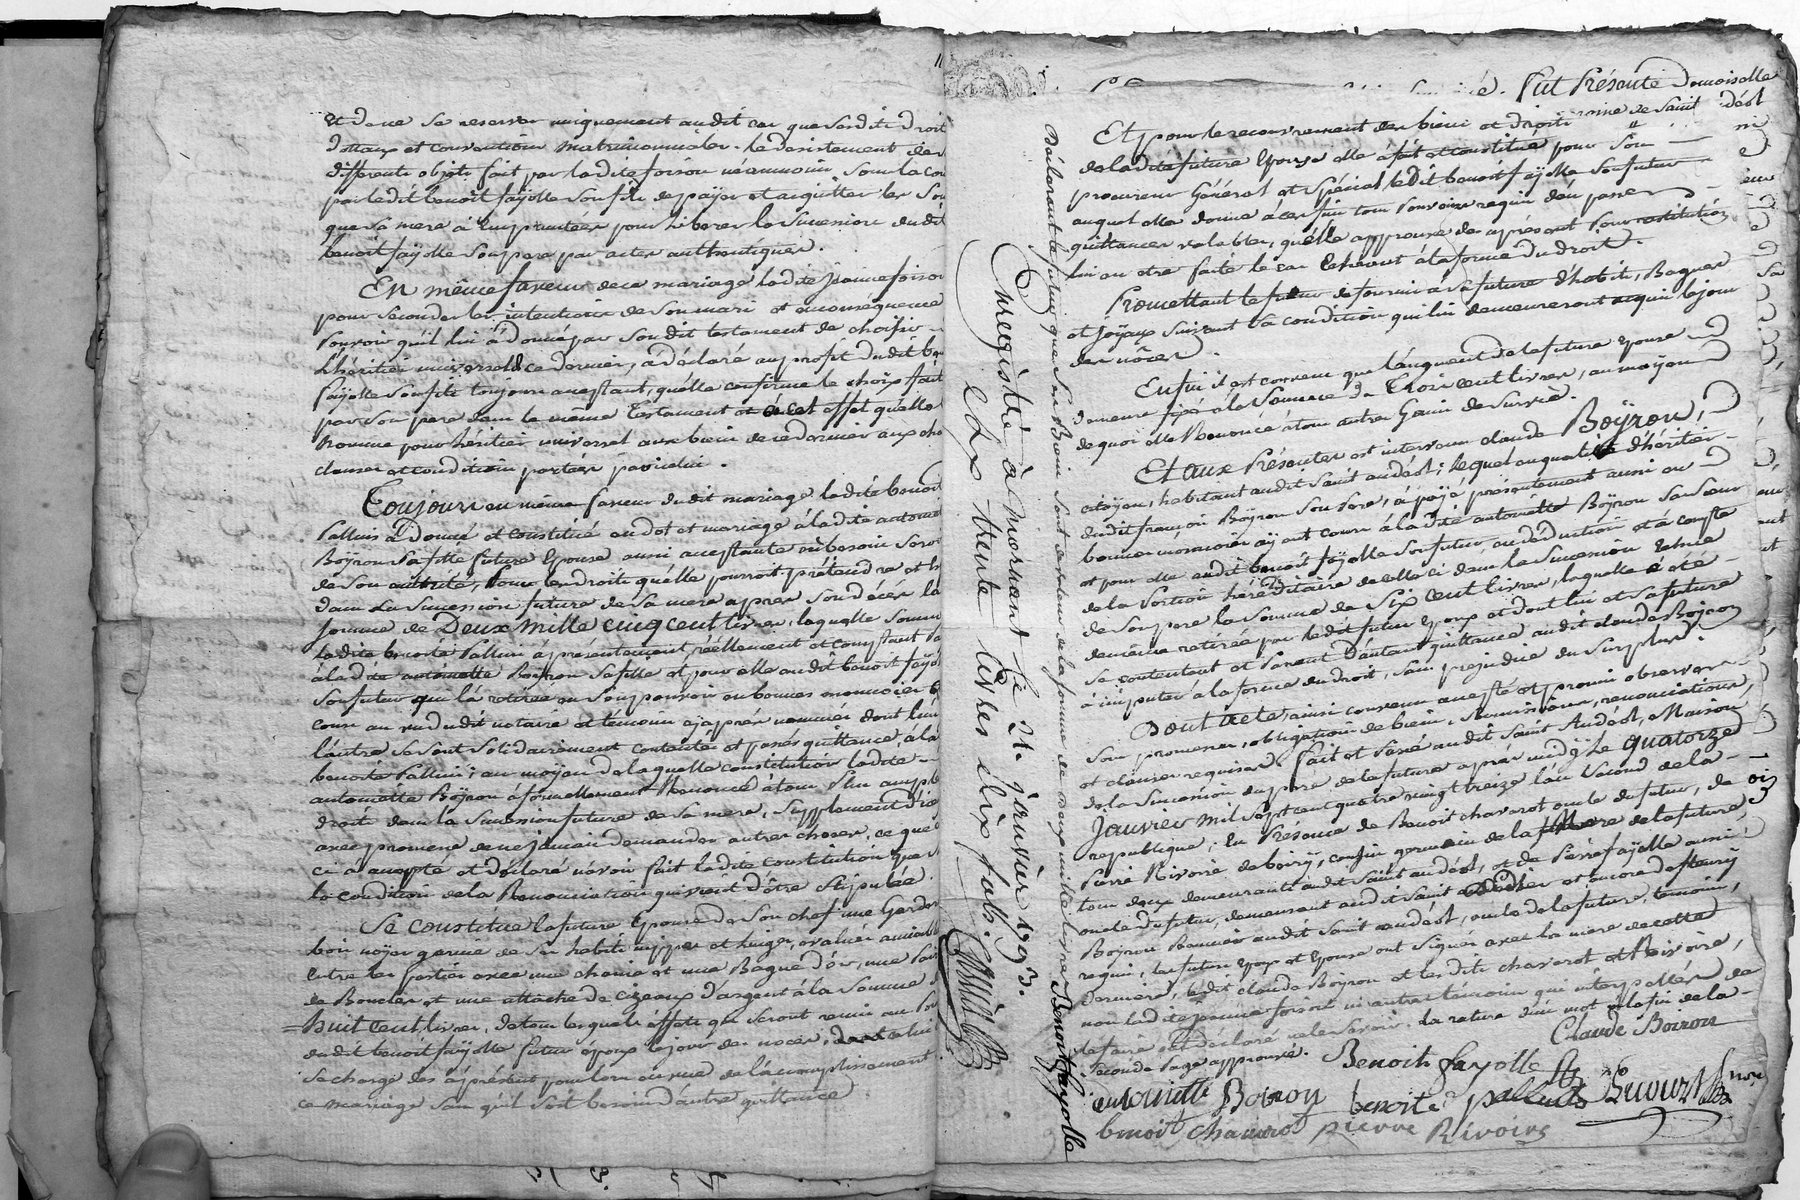 et donne se reserver uniquement audit cas que sesdits droits
dottaux et conventions matrimonniales. le desistement des
differents objets fait par ladite foison néammoins sous la con
par ledit benoit fayolle son fils de payer et acquitter les
que sa mere à empruntées pour liberer la succession dudit
benoit fayolle son pere par actes authentiques.
En même faveur de ce mariage ladite jeanne foison
pour seconder les intentions de son mari et en consequence
pouvoir qu'il lui à donné par sondit testament de choisir
l'héritier universel de ce dernier, à déclaré au profit dudit
fayolle son fils toujours acceptant, qu'elle confirme le choix fait
par son pere dans le même testament et à cet effet qu'elle
nomme pour héritier universel aux biens de ce dernier aux
clauses et conditions portées par icelui.
Toujours en même faveur dudit mariage ladite benoite
Pallluis à donné et constitué en dot et mariage à ladite antoinette
Boÿron sa fille future epouse aussi acceptante
de son autorité, pour les droits qu'elle pourroit prétendre et
dans la succession future de sa mere apres son décès la
somme de Deux mille cinq cent livres, laquelle somme
ladite benoite Palluis a présentement, réellement et comptant
à ladite antoinette Boÿron sa fille et pour elle audit benoit fayolle
son futur qui l'a retirée en son pouvoir en bonnes monnoies
cours au vu dudit notaire et temoins cy après nommés dont l'un
l'autre se sont solidairement contentés et passés quittance, à la
benoite Palluis; au moyen de laquelle constitution ladite
antoinette Boÿron à formellement renoncé à tous plus amples
droits dans la succession future de sa mere, supplement d'i
avec promesse de ne jamais demander autres choses, ce que
ci a accepté et déclaré n'avoir fait ladite constitution que
la condition de la Renonciation qui vient d'être stipulée.
Se constitue la future Epouse de son chef une Garder
bois noyer garnie de ses habits nippes et linges, evalués amiable
entre les parties avec une chaine et une Bague d'or, une
de Boucles et une attache de cizeaux d'argent à la somme
huit cent livres, de tous lesquels effets qui seront remis au
dudit benoit fayolle futur époux le jour des noces, dont celui
se charge dès àprésent pour lors au vu de l'accomplissement
ce mariage sans qu'il soit besoin d'autre quittance
fut Présente Demoiselle
Et pour le recouvrement des biens et droits
de ladite future epouse elle a fait et constitué pour son
procureur Général et spécial ledit benoit fayolle son futur
auquel elle donne à ces fins tous pouvoirs requis d'en passer
quittances valables, qu'elle approuve dès àprésent pour restitution
lui en etre faite le cas échéant à la forme du droit.
Promettant le futur de fournir à sa future d'habits, Bagues
et joÿaux suivant sa condition qui lui demeureront acquis le jour
des nôces.
Enfin il est convenu que l'augment de la future epouse
demeure fixé à la somme de Trois cent livres, au moyen
de quoi elle Renonce à tous autres Gains de survie.
Et aux Présentes est intervenu claude Boÿron,
citoyen, habitant audit saint andéol; lequel en qualité d'hériter
dudit françois Boÿron son pere, à payé présentement aussi en
bonnes monnoies ayant cours à la dite antoinette Boÿron sa sœur
et pour elle audit benoit fayolle son futur, en déduction et à compte
de la portion héréditaire de celle ci dans la succession échue
de son pere la somme de Six cent livres, laquelle a été
de même retirée par ledit futur epoux et dont lui et sa future
se contentent et passent d'autant quittance audit claude Boÿron
à imputer à la forme du droit, sans prejudice du surplus.
Dont acte, ainsi convenu accepté et promis observer
sous promesses, obligations de biens, soumissions, renonciations,
et clauses requises. fait et Passé audit saint Andéol, Maison
de la succession du pere de la future après midÿ Le quatorze
Janvier mil sept cent quatre vingt treize l'an second de la
republique, En présence de Benoit chaverot oncle du futur, de
Pierre Rivoire de boiry, cousin germain de la mere de la future
tous deux demeurants audit saint andéol, et de Pierre fayolle aussi
oncle du futur, demeurant audit saint et encore de fleury
Boÿron demeurant audit saint andéol, oncle de la future, temoins,
requis, les futurs epoux et epouse ont signé avec la mere de cette
derniere, ledit claude Boÿron et lesdits chaverot et Rivoire,
non ladite jeanne foison ni autres temoins qui interpellés de
le faire ont déclaré ne le savoir. la rature d'un mot à la fin de la
seconde Page approuvée.
Claude Boiron
Benoit fayolle
antoinette Boiron
benoite pallluis
benoit chaverot
pierre Rivoire
Déclarant le futur que ses Biens sont de valeur de la somme de deux mille livres Benoit fayolle
Enregistré à mornant le 21. janvier 1793.
reçu trente livres dix sols.